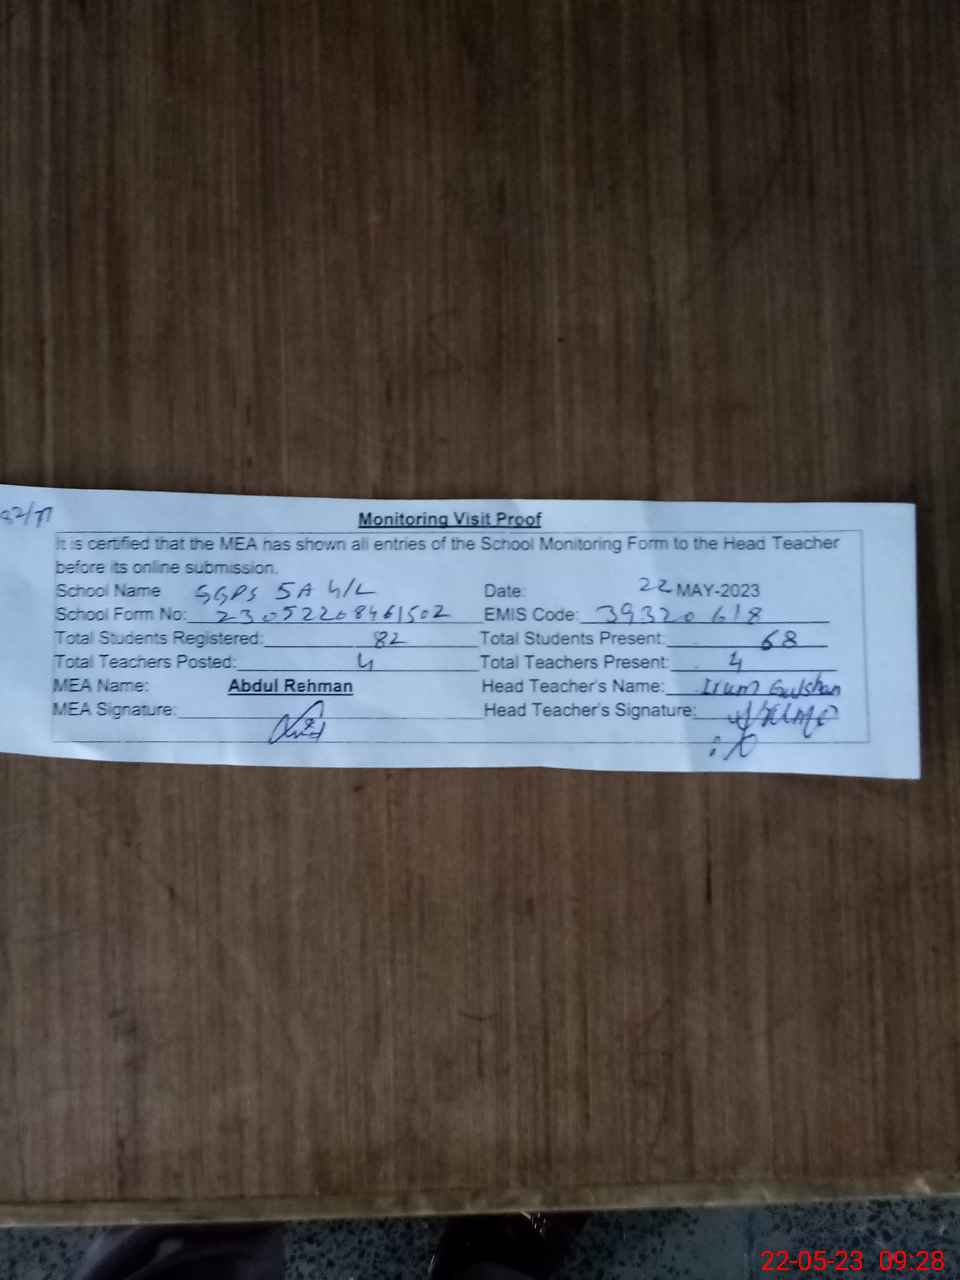 Monitoring Visit Proof
It is certified that the MEA has shown all entries of the School Monitoring Form to the Head Teacher
before its online submission.
School Name GGPS 5A 4/L Date: 22 MAY-2023
School Form No: 23052208461502 EMIS Code: 39320618
Total Students Registered: 82 Total Students Present: 68
Total Teachers Posted: 4 Total Teachers Present: 4
MEA Name: Abdul Rehman Head Teacher's Name: Irum Gulshan
MEA Signature: Head Teacher's Signature:
22-05-23 09:28